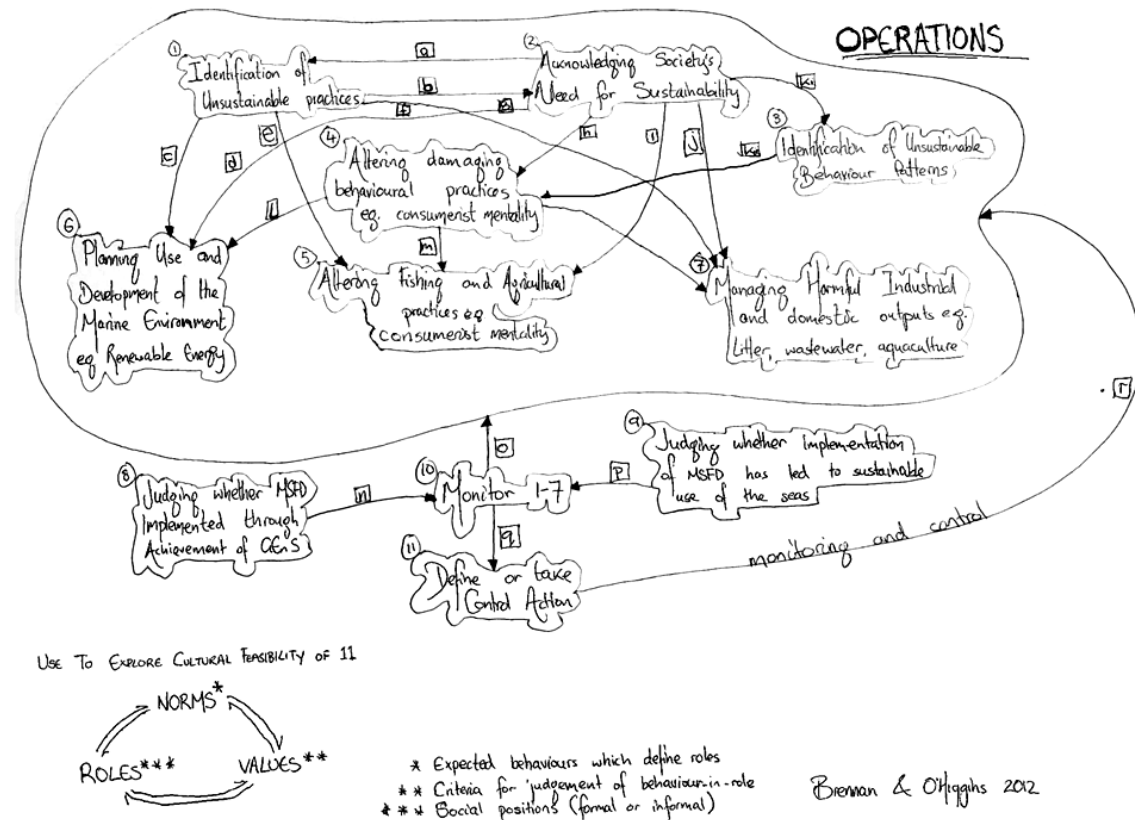 OPERATIONS
① Identification of
Unsustainable practices
a
b
② Acknowledging Society's
Need for Sustainability
k₁
③ Identification of Unsustainable
Behaviour Patterns
c
d
e
f
g
h
i
j
④ Altering damaging
behavioural practices
eg. consumerist mentality
l
m
⑤ Altering Fishing and Agricultural
practices eg
consumerist mentality
⑥ Planning Use and
Development of the
Marine Environment
eg Renewable Energy
⑦ Managing Harmful Industrial
and domestic outputs eg.
Litter, wastewater, aquaculture
r
o
⑧ Judging whether MSFD
Implemented through
Achievement of GEnS
n
⑩ Monitor 1-7
p
⑨ Judging whether implementation
of MSFD has led to sustainable
use of the seas
q
⑪ Define or take
Control Action
monitoring and control
USE TO EXPLORE CULTURAL FEASIBILITY OF 11
NORMS*
ROLES***
VALUES**
* Expected behaviours which define roles
** Criteria for judgement of behaviour-in-role
*** Social positions (formal or informal)
Brennan & O'Higgins 2012